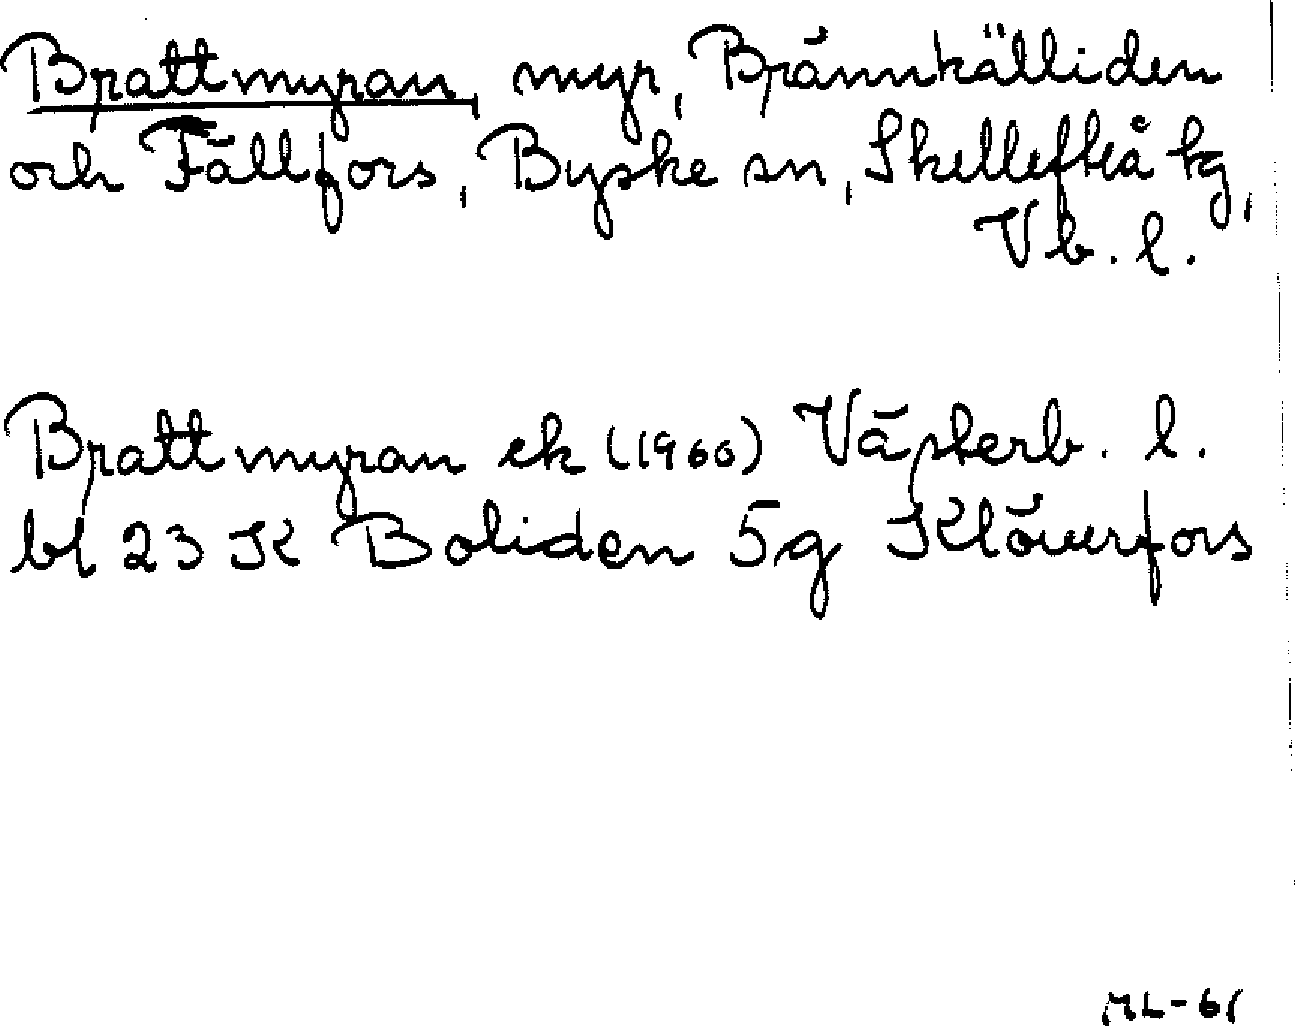 Brattmyran, myr, Brännkälliden
och Fällfors, Byske sn, Skellefteå kg,
Vb. l.
Brattmyran ek (1960) Västerb. l.
bl 23 K Boliden 5g Klöverfors
ML-61